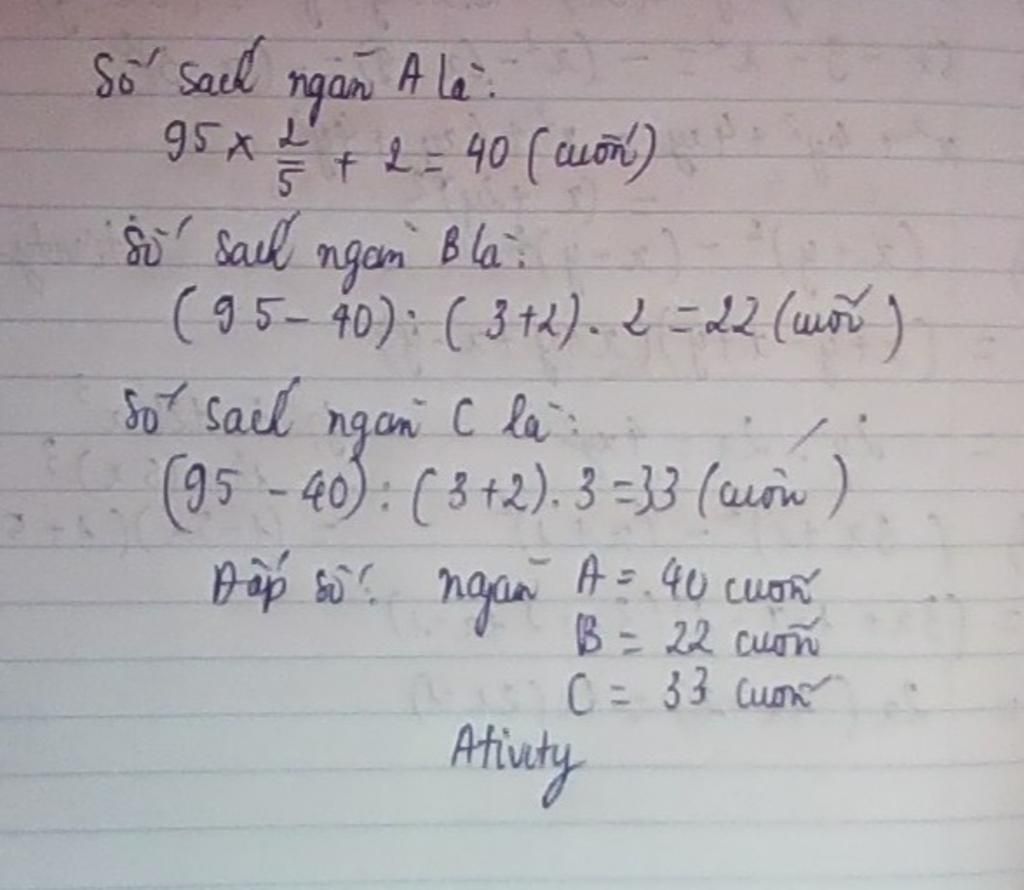 Số sách ngăn A là:
95 x 2/5 + 2 = 40 (cuốn)
Số sách ngăn B là:
(95 - 40) : (3+2) . 2 = 22 (cuốn)
Số sách ngăn C là:
(95 - 40) : (3+2) . 3 = 33 (cuốn)
Đáp số: ngăn A = 40 cuốn
B = 22 cuốn
C = 33 cuốn
Ativity